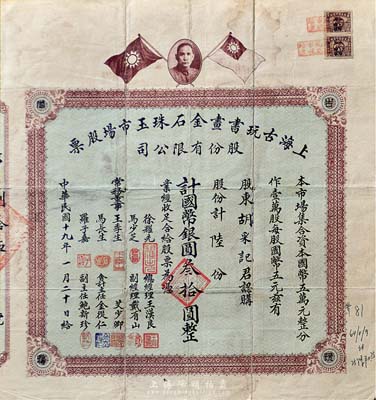 上海古玩書畫金石珠玉市場股票
股份有限公司
本市場集合資本國幣五萬元整分
作壹萬股每股國幣五元茲有
股東胡采記君認購
股份計陸份
計國幣銀圓叁拾圓整
業經收足合給股票為憑
常務董事
徐耀先
馬少定
王季生
馬長生
羅子嘉
總經理王漢良
副經理戴有山
會計主任金從仁
副主任鮑新珍
中華民國十九年一月二十日給
81